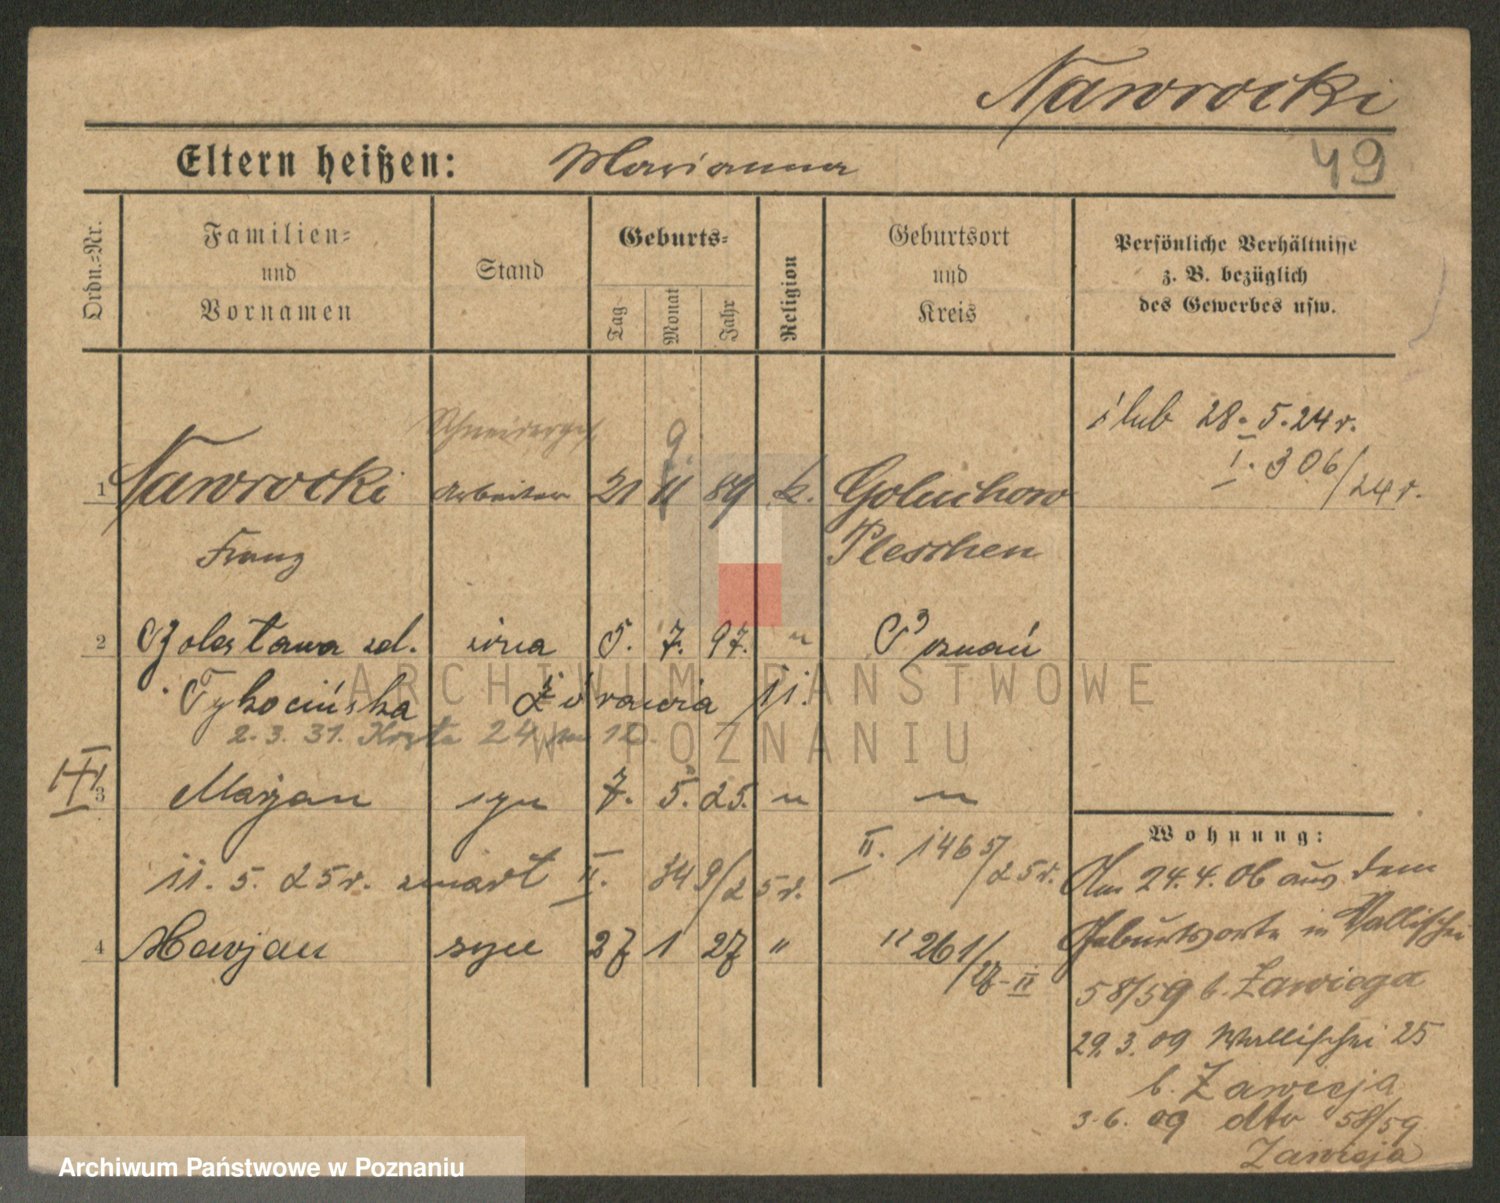 Nawrocki
49
Eltern heißen: Marianna
Ordn.-Nr.
Familien-
und
Vornamen
Stand
Geburts-
Tag
Monat
Jahr
Religion
Geburtsort
und
Kreis
Persönliche Verhältnisse
z. B. bezüglich
des Gewerbes usw.
ślub 28.5.24r.
I. 306/24r.
Schneiderges. 9.
1 Nawrocki Arbeiter 21 11 89 k. Goluchow
Franz Pleschen
2 Bolesława zd. żona 5. 7. 97. " Poznań
Tykocińska Żórawia 11.
2.3.31. Kręta 24 m 10.
III
3 Marjan syn 7. 5. 25. " "
11. 5. 25r. zmarł II. 849/25r. II. 1465/25r.
4 Marjan syn 27 1 27 " " 261/27-II
Wohnung:
Am 24.4.06 aus dem
Geburtsorte in Wallischei
58/59 b. Zawieja
29.3.09 Wallischei 25
b. Zawieja
3.6.09 dto 58/59
Zawieja
ARCHIWUM PAŃSTWOWE
W POZNANIU
Archiwum Państwowe w Poznaniu